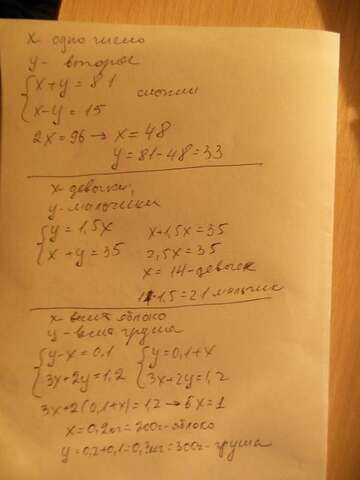 x - одно число
y - второе
{ x + y = 81
{ x - y = 15 сложим
2x = 96 → x = 48
y = 81 - 48 = 33
x - девочки,
y - мальчики
{ y = 1,5x x + 1,5x = 35
{ x + y = 35 2,5x = 35
x = 14 - девочек
14·1,5 = 21 мальчик
x - весит яблоко
y - весит груша
{ y - x = 0,1 { y = 0,1 + x
{ 3x + 2y = 1,2 { 3x + 2y = 1,2
3x + 2(0,1 + x) = 1,2 → 5x = 1
x = 0,2 кг = 200г - яблоко
y = 0,2 + 0,1 = 0,3кг = 300г - груша